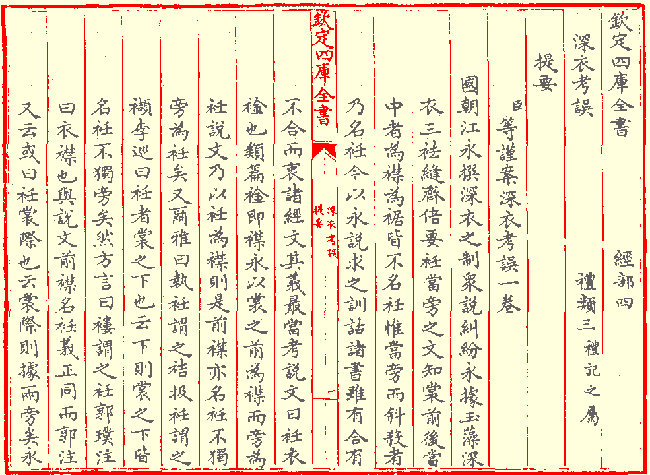 欽定四庫全書　經部四
深衣考誤　禮類三禮記之屬
提要
臣等謹案深衣考誤一卷
國朝江永撰深衣之制衆說糾紛永據玉藻深
衣三袪縫齊倍要衽當旁之文知裳前後當
中者為襟為裾皆不名衽惟當旁而斜殺者
乃名衽今以永說求之訓詁諸書雖有合有
欽定四庫全書
深衣考誤
提要
不合而衷諸經文其義最當考說文曰衽衣
䘳也類篇䘳即襟永以裳之前為襟而旁為
衽說文乃以衽為襟則是前襟亦名衽不獨
旁為衽矣又爾雅曰執衽謂之袺扱衽謂之
襭李巡曰衽者裳之下也云下則裳之下皆
名衽不獨旁矣然方言曰褸謂之衽郭璞注
曰衣襟也與說文前襟名衽義正同而郭注
又云或曰衽裳際也云裳際則據兩旁矣永